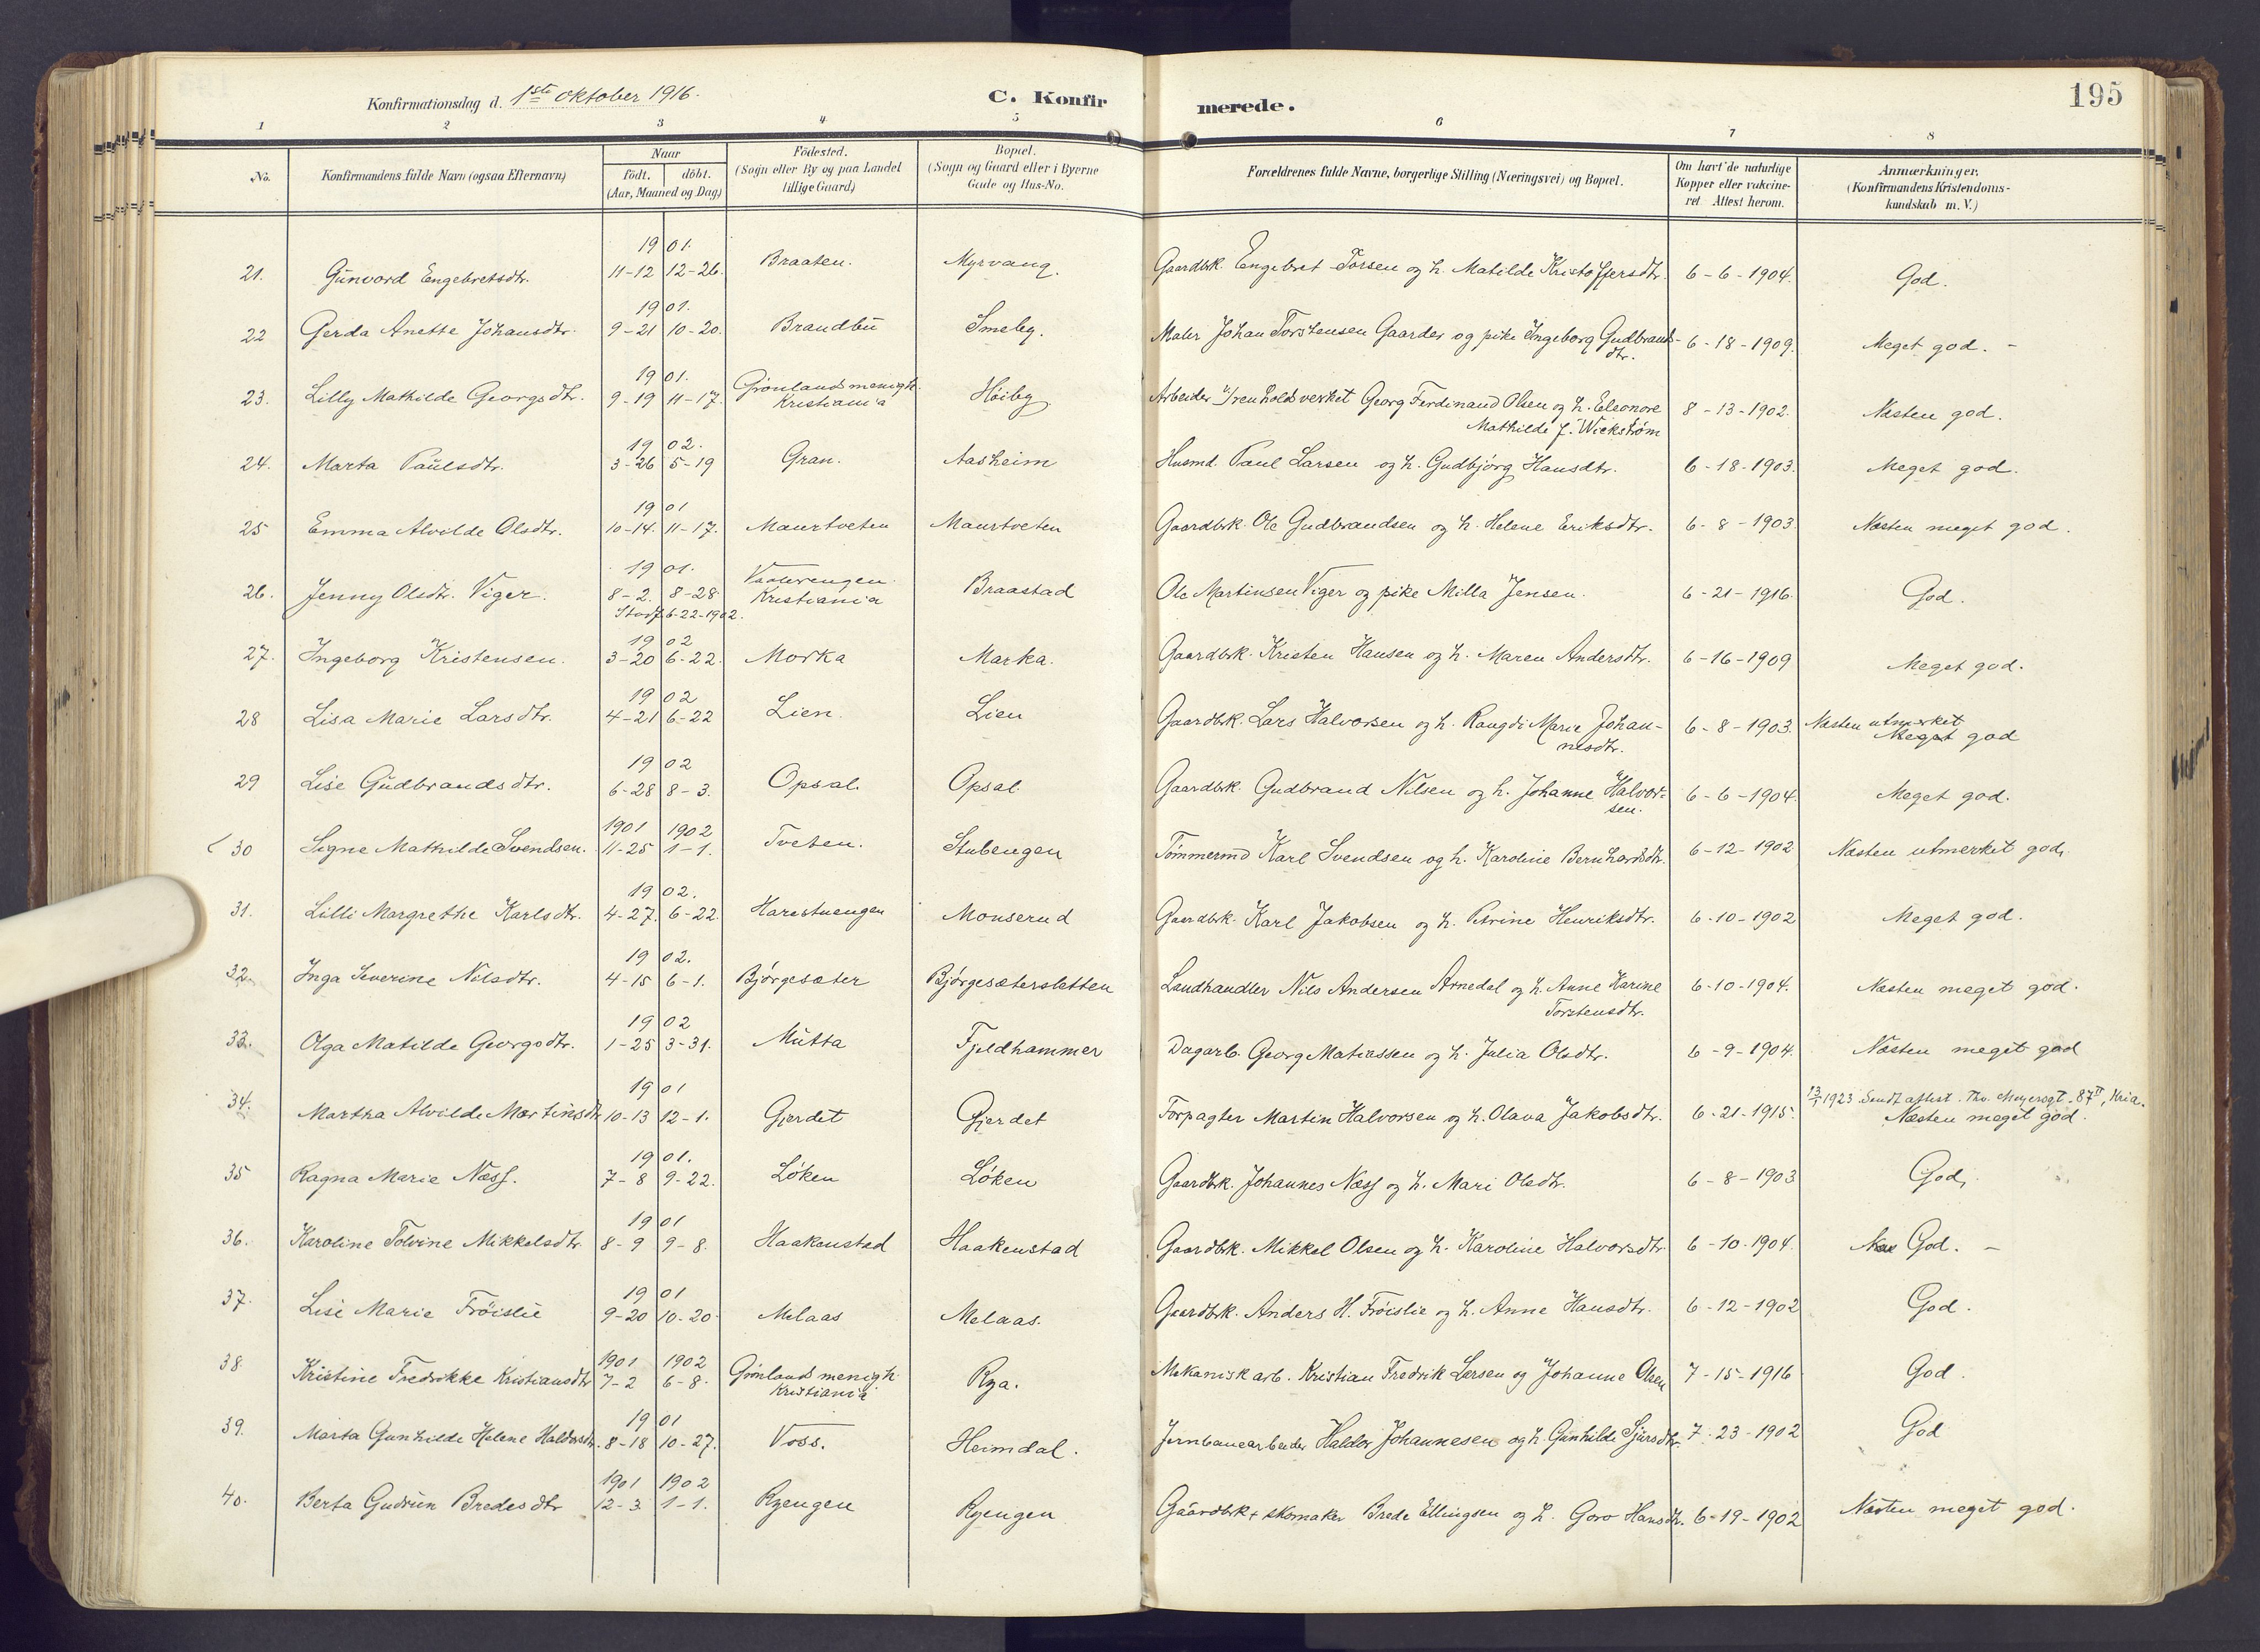 Konfirmationsdag d. 1ste oktober 1916. C. Konfirmerede. 195
1 2 3 4 5 6 7 8
No. Konfirmandens fulde Navn (ogsaa Efternavn) Naar födt. döbt. (Aar, Maaned og Dag) Födested. (Sogn eller By og paa Landet tillige Gaard) Bopæl. (Sogn og Gaard eller i Byerne Gade og Hus-No. Forældrenes fulde Navne, borgerlige Stilling (Næringsvei) og Bopæl. Om havt de naturlige Kopper eller vakcineret Attest herom. Anmærkninger. (Konfirmandens Kristendomskundskab m. V.)
21. Gunvord Engebretsdtr. 1901. 11-12 12-26. Braaten. Myrvang. Gaardbk. Engebret Torsen og h. Matilde Kristoffersdtr. 6-6-1904. God.
22 Gerda Anette Johansdtr. 1901. 9-21 10-20. Brandbu Smeby. Maler Johan Torstensen Gaarder og pike Ingeborg Gudbrandsdtr. 6-18-1909. Meget god. -
23. Lilly Mathilde Georgsdtr. 1901. 9-19 11-17. Grønlands menigh. Kristiania Høiby. Arbeider v/renholdsverket Georg Ferdinand Olsen og h. Eleonore Mathilde f. Wickstrøm 8-13-1902. Næsten god.
24. Marta Paulsdtr. 1902. 3-26 5-19 Gran. Aasheim Husmd. Paul Larsen og h. Gudbjørg Hansdtr. 6-18-1903. Meget god.
25 Emma Alvilde Olsdtr. 1901 10-14. 11-17. Maurtveten Maurtveten Gaardbk. Ole Gudbrandsen og h. Helene Eriksdtr. 6-8-1903. Næsten meget god.
26. Jenny Olsdtr. Viger. 1901. 8-2. 8-28. Stadf. 6-22-1902. Vaalerengen Kristiania Braastad Ole Martinsen Viger og pike Milla Jensen. 6-21-1916. God.
27. Ingeborg Kristensen. 1902 3-20 6-22. Morka Marka. Gaardbk. Kristen Hansen og h. Maren Andersdtr. 6-16-1909 Meget god.
28 Lisa Marie Larsdtr. 1902 4-21 6-22 Lien. Lien Gaardbk. Lars Halvorsen og h. Rangdi Marie Johannesdtr. 6-8-1903. Næsten utmerket Meget god
29 Lise Gudbrandsdtr. 1902 6-28 8-3. Opsal. Opsal Gaardbk. Gudbrand Nilsen og h. Johanne Halvorsen. 6-6-1904. Meget god.
30 Signe Mathilde Svendsen. 1901 11-25 1902 1-1. Tveten. Stubengen Tømmermd Karl Svendsen og h. Karoline Bernhardsdtr. 6-12-1902 Næsten utmerket god.
31. Lilli Margrethe Karlsdtr. 1902. 4-27. 6-22. Harestuengen Monserud Gaardbk. Karl Jakobsen og h. Petrine Henriksdtr. 6-10-1902 Meget god.
32. Inga Severine Nilsdtr. 1902. 4-15 6-1. Bjørgesæter Bjørgesæterslatten Landhandler Nils Andersen Arnedal og h. Anne Karine Torstensdtr. 6-10-1904. Næsten meget god.
33. Olga Matilde Georgsdtr. 1902 1-25 3-31. Mutta Fjeldhammer Dagarb. Georg Matiassen og h. Julia Olsdtr. 6-9-1904. Næsten meget god
34. Martha Alvilde Martinsdtr 1901 10-13 12-1. Gjerdet Gjerdet Forpagter Martin Halvorsen og h. Olava Jakobsdtr. 6-21-1915. 13/1 1923 Sendt attest. Thv. Meyersgt. 87 II, Kria. Næsten meget god.
35 Ragna Marie Næss. 1901. 7-8 9-22. Løken Løken Gaardbk. Johannes Næss og h. Mari Olsdtr. 6-8-1903 God.
36. Karoline Tolvine Mikkelsdtr. 1901 8-9 9-8. Haakenstad Haakenstad Gaardbk. Mikkel Olsen og h. Karoline Halvorsdtr. 6-10-1904. God. -
37. Lise Marie Frøislie 1901 9-20 10-20. Melaas Melaas. Gaardbk. Anders H. Frøislie og h. Anne Hansdtr. 6-12-1902 God.
38 Kristine Fredrikke Kristiansdtr 1901 7-2 1902 6-8. Grønlands menigh. Kristiania Rya. Mekanisk arb. Kristian Fredrik Larsen og Johanne Olsen 7-15-1916 God.
39. Marta Gunhilde Helene Haldorsdtr. 1901 8-18 10-27. Voss. Heimdal. Jernbanearbeider Haldor Johannesen og h. Gunhilde Sjursdtr. 7-23-1902 God
40. Berta Gudrun Bredesdtr 1901 12-3. 1902 1-1. Ryengen Ryengen Gaardbk + skomaker Brede Ellingsen og h. Goro Hansdtr. 6-19-1902 Næsten meget god.